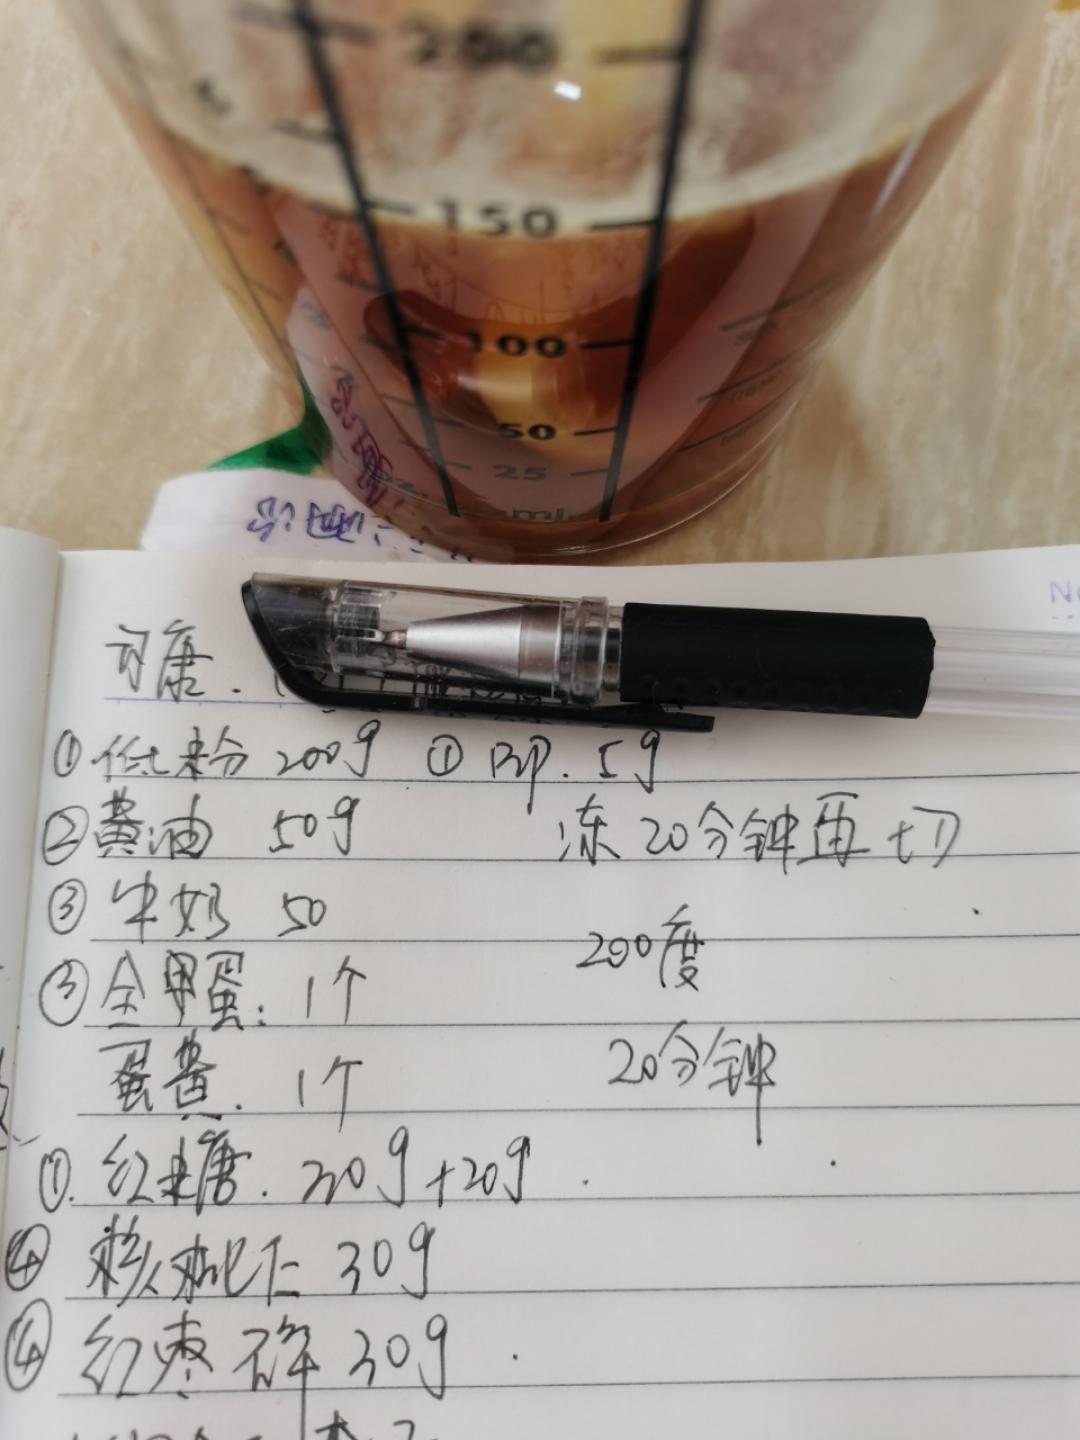 200
150
100
50
25
ml
司康.
① 低粉 200g ① BP. 5g
② 黄油 50g 冻20分钟再切
③ 牛奶 50
200度
③ 全甲蛋: 1个
蛋黄. 1个 20分钟
①. 红糖. 30g+20g.
④ 核桃仁 30g
④ 红枣碎 30g.